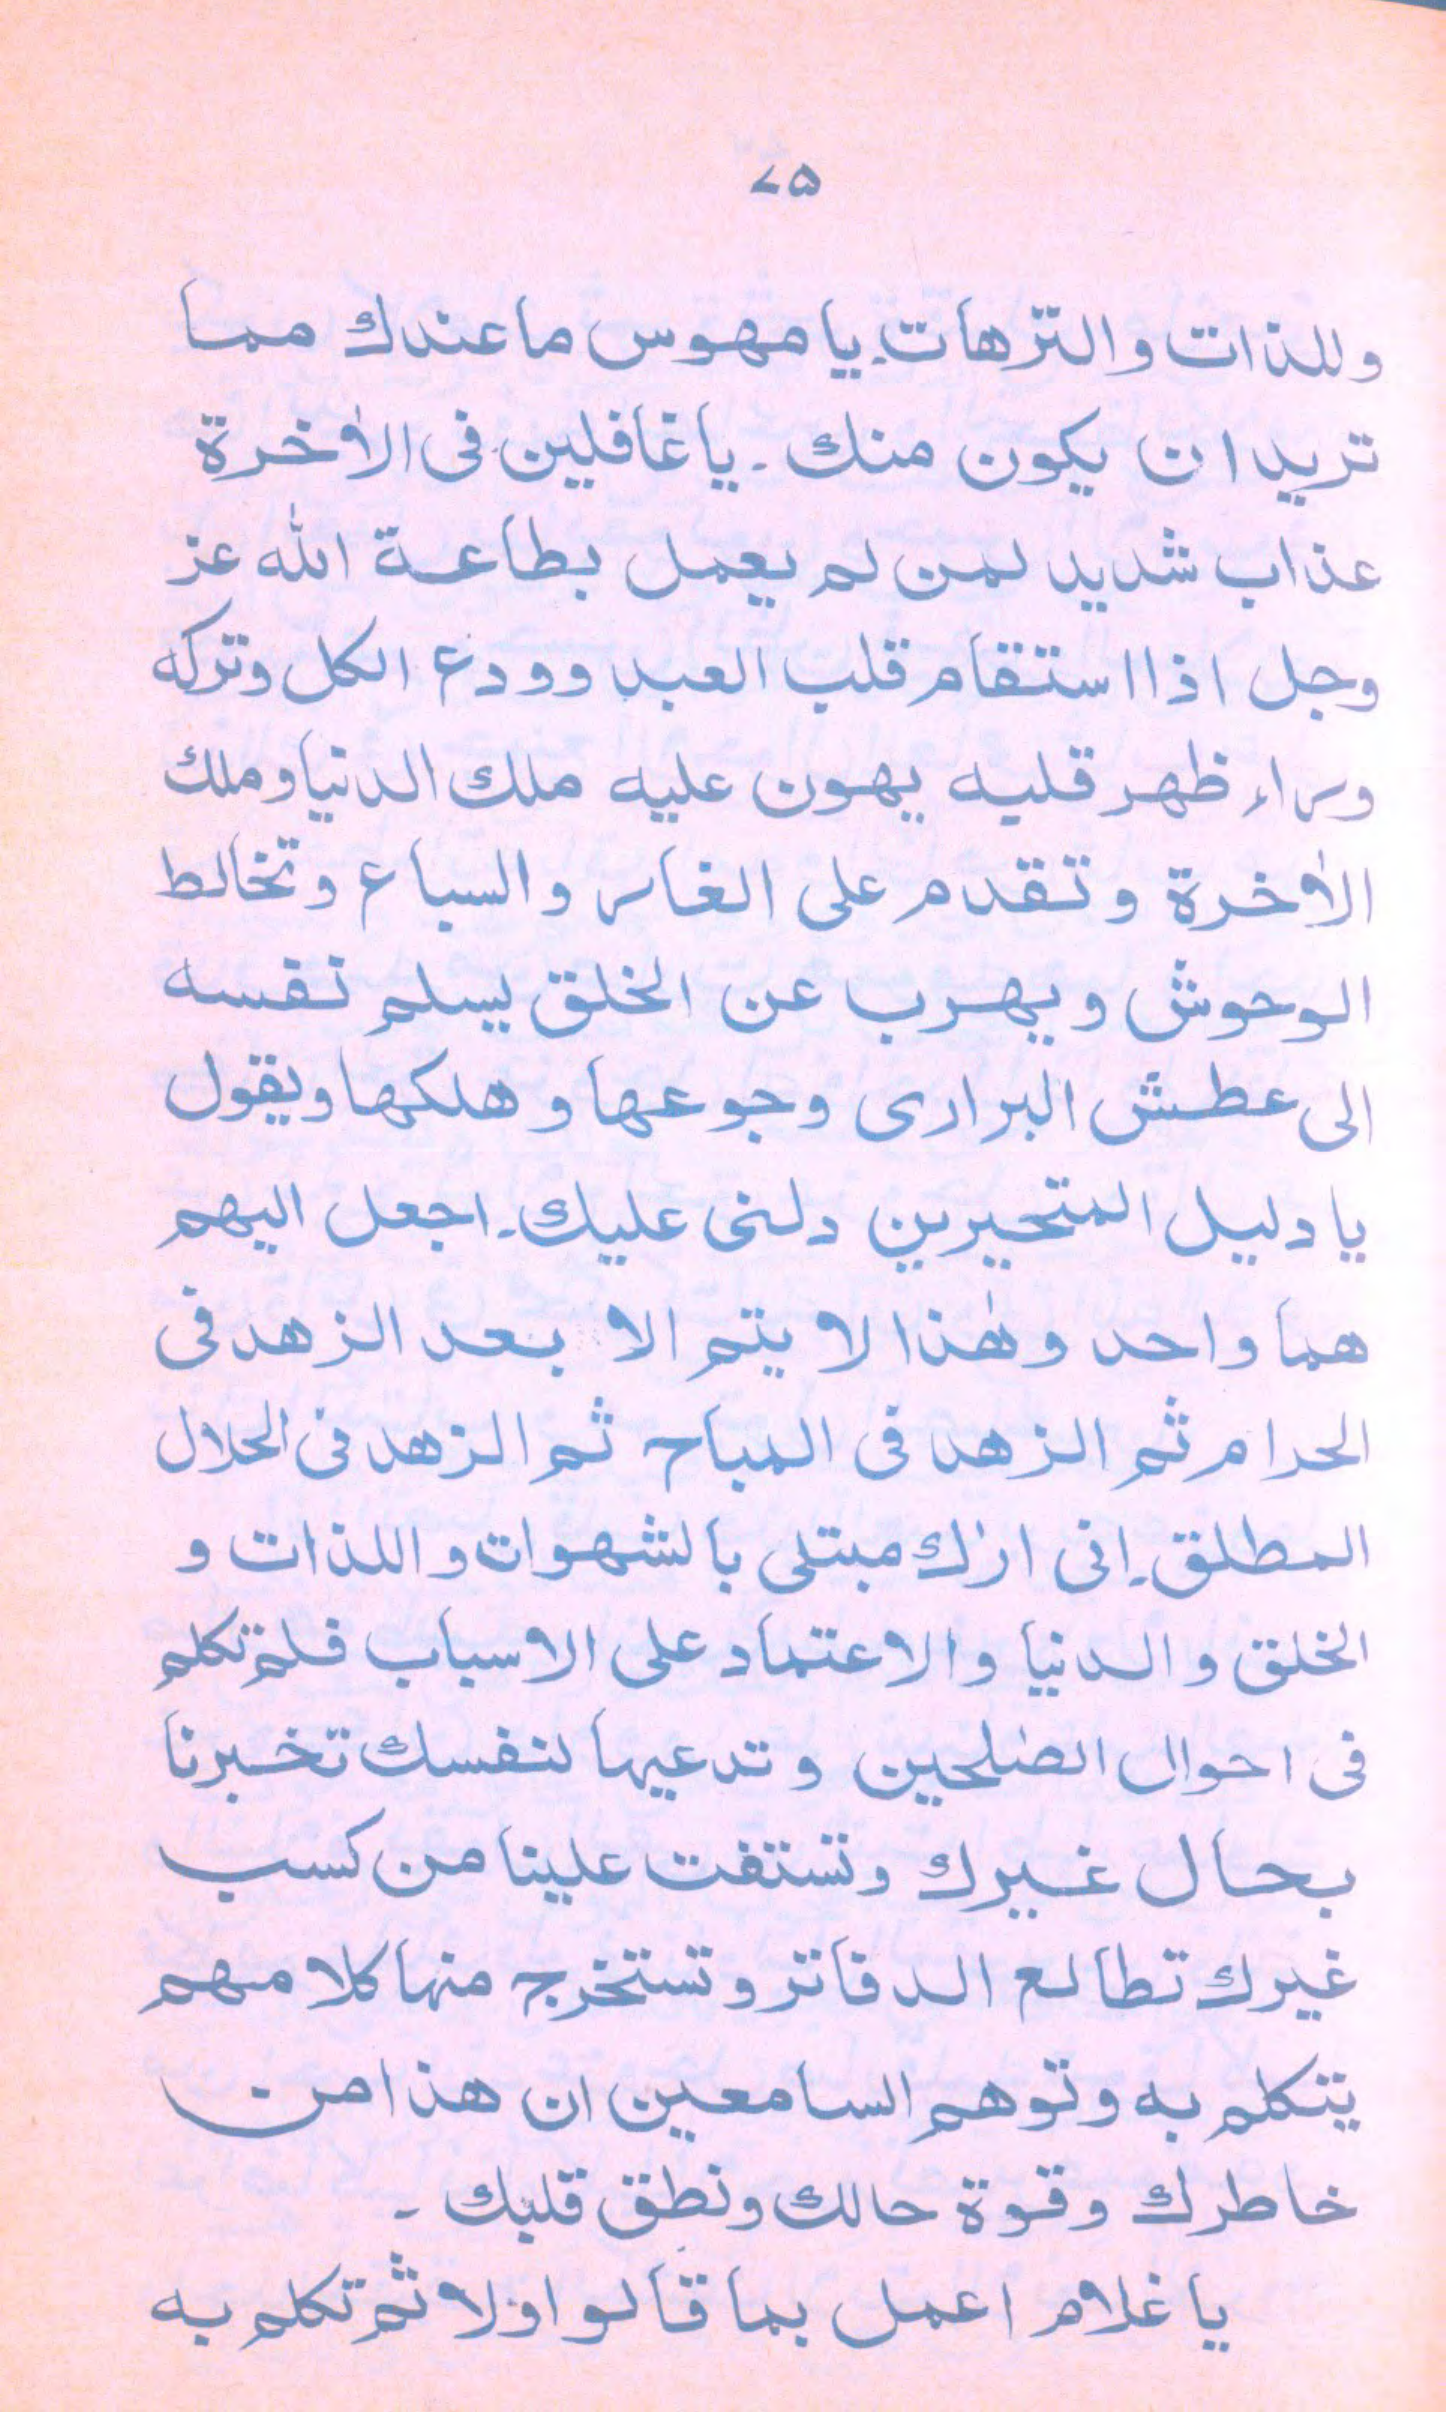 ۷۵
وللذات والترّهات۔ يا مهوس ما عندك مما
تريد ان يكون منك ۔ يا غافلين فى الاٰخرة
عذاب شديد لمن لم يعمل بطاعة الله عز
وجل اذا استقام قلب العبد وودع الكل وتركه
وراء ظهر قلبه يهون عليه ملك الدنيا وملك
الاٰخرة وتقدم على الغار والسباع وتخالط
الوحوش ويهرب عن الخلق يسلم نفسه
الى عطش البرارى وجوعها وهلكها ويقول
يا دليل المتحيرين دلنى عليك۔ اجعل اليهم
هما واحد وهٰذا لا يتم الا بعد الزهد فى
الحرام ثم الزهد فى المباح ثم الزهد فى الحلال
المطلق۔ انى ارٰك مبتلى بالشهوات واللذات و
الخلق والدنيا والاعتماد على الاسباب فلم تكلم
فى احوال الصٰلحين وتدعيها لنفسك تخبرنا
بحال غيرك وتستفت علينا من كسب
غيرك تطالع الدفاتر وتستخرج منها كلامهم
يتكلم به وتوهم السامعين ان هذا من
خاطرك وقوة حالك ونطق قلبك ۔
يا غلام اعمل بما قالوا اولا ثم تكلم به